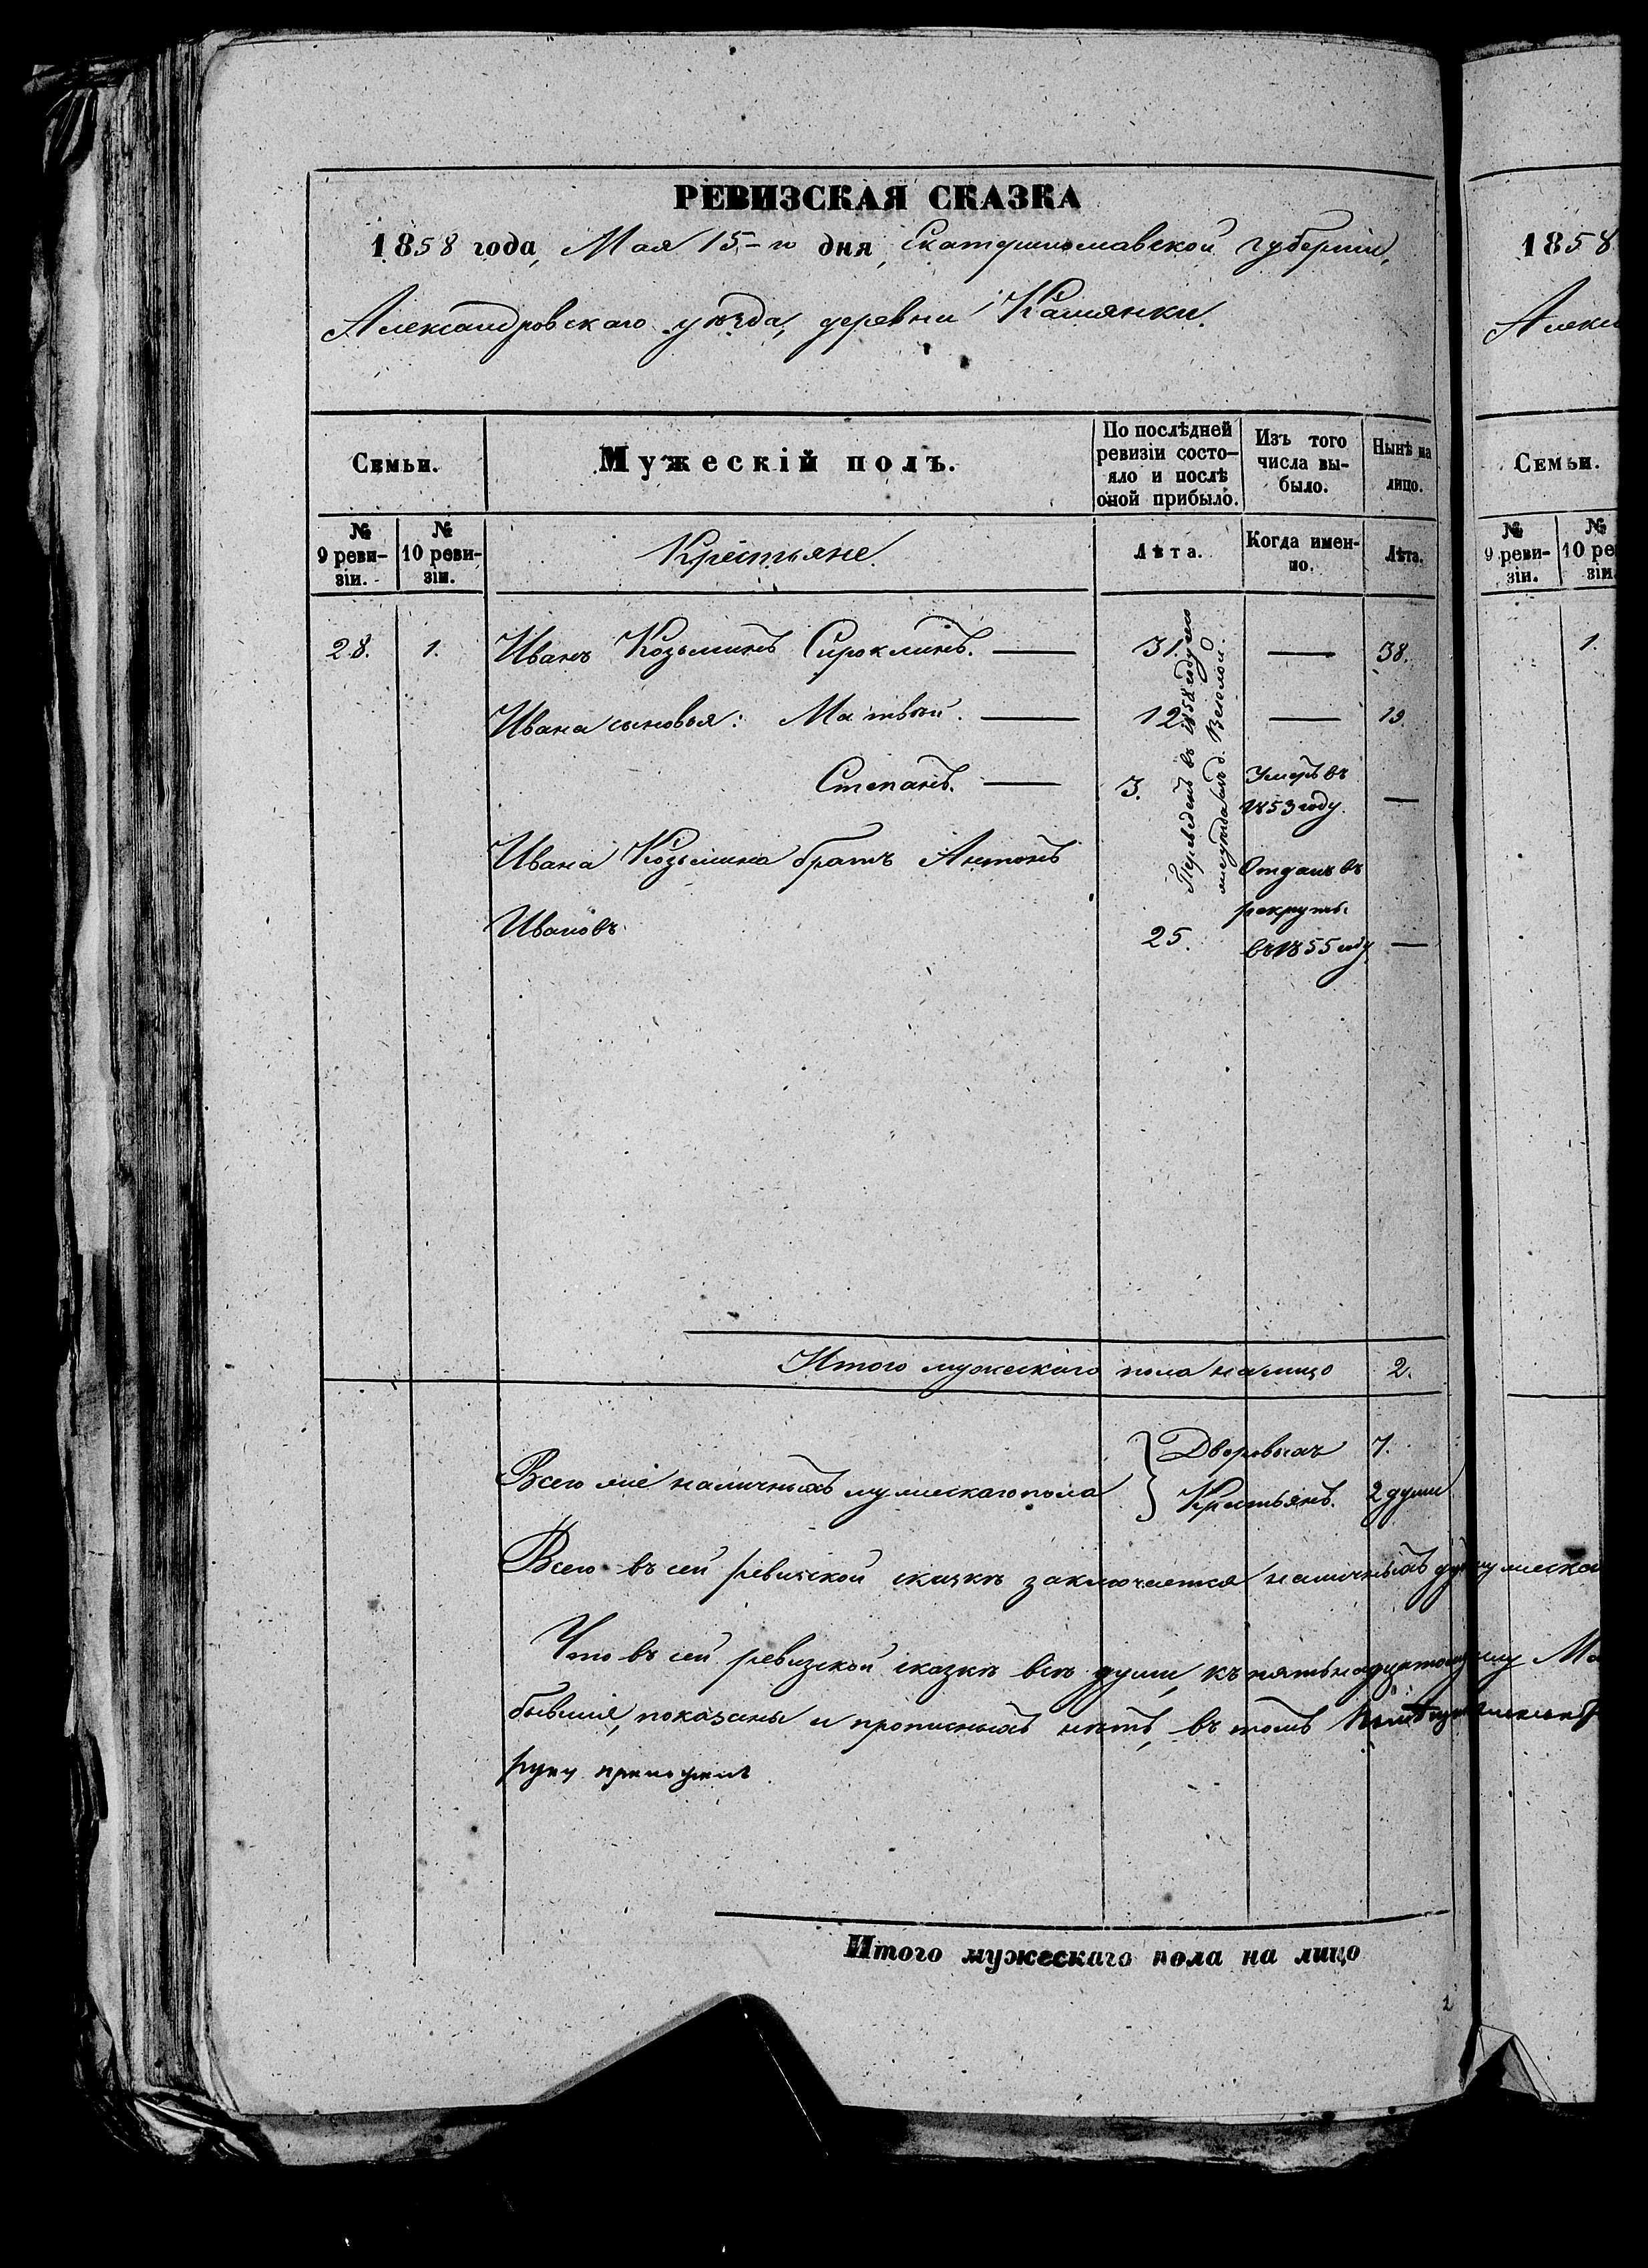 РЕВИЗСКАЯ СКАЗКА
1858 года, Мая 15-го дня, Екатеринославской губернии,
Александровскаго уѣзда, деревни Камянки.
Семьи.
Мужескій полъ.
По послѣдней ревизіи состо-
яло и послѣ
оной прибыло.
Изъ того
числа вы-
было.
Нынѣ на
лицо.
№
9 реви-
зіи.
№
10 реви-
зіи.
Крестьяне.
Лѣта.
Когда имен-
но.
Лѣта.
28. 1. Иванъ Козьминъ 31. — 38.
Ивана сыновья: Матвѣй. — 12 — 19.
Степанъ. — 3. Умеръ въ
1853 году. —
Ивана Козьмина братъ Антонъ
Ивановъ 25. Отданъ въ
рекруты
въ 1855 году —
Переведенъ въ 1858 году изъ
д. Веселой.
Итого мужескаго пола на лицо 2.
Всего же наличныхъ мужескаго пола } Дворовыхъ 7.
Крестьянъ. 2 души
Всего въ сей ревизской сказкѣ заключается наличныхъ
Что въ сей ревизской сказкѣ всѣ души, къ
бывшія, показаны и прописныхъ нѣтъ, въ томъ
руку приложилъ
Итого мужескаго пола на лицо
1858
Семьи.
№
9 реви-
зіи.
№
10 ре
зіи
1.